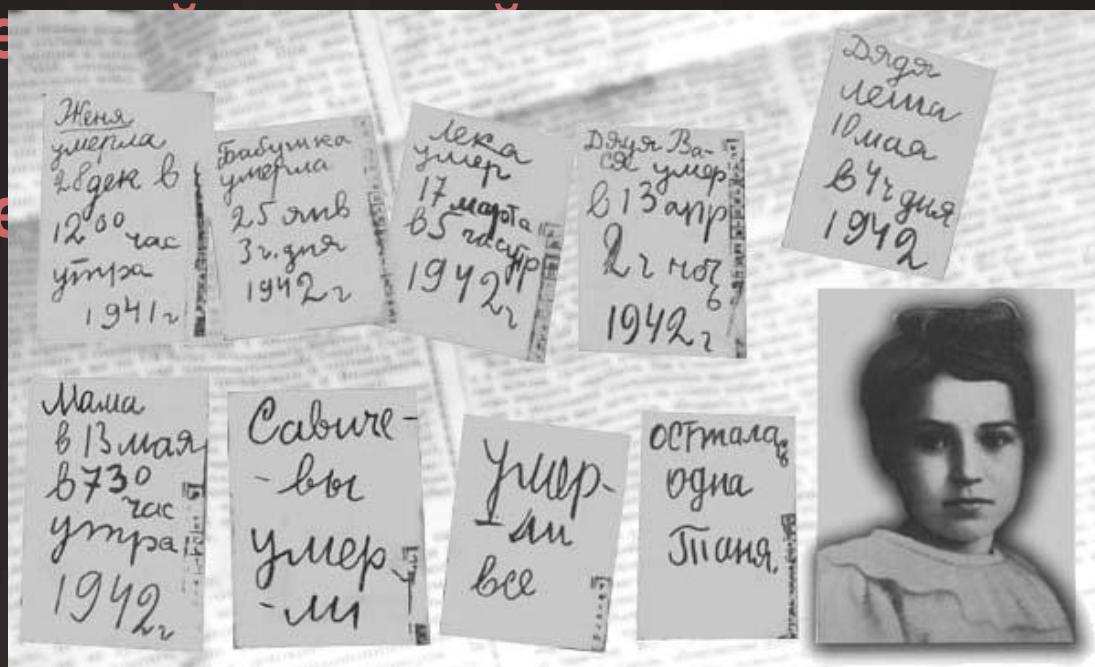 Женя
умерла
28 дек в
12⁰⁰ час
утра
1941 г
Бабушка
умерла
25 янв
3 ч. дня
1942 г
Лека
умер
17 марта
в 5 часутр
1942 г
Дядя Ва-
ся умер
в 13 апр
2 ч ноч
ь
1942 г
Дядя
Леша
10 мая
в 4 ч дня
1942
Мама
в 13 мая
в 7 30
час
утра
1942 г
Савиче-
-вы
умер
-ли
Умер-
-ли
все
Осталась
одна
Таня